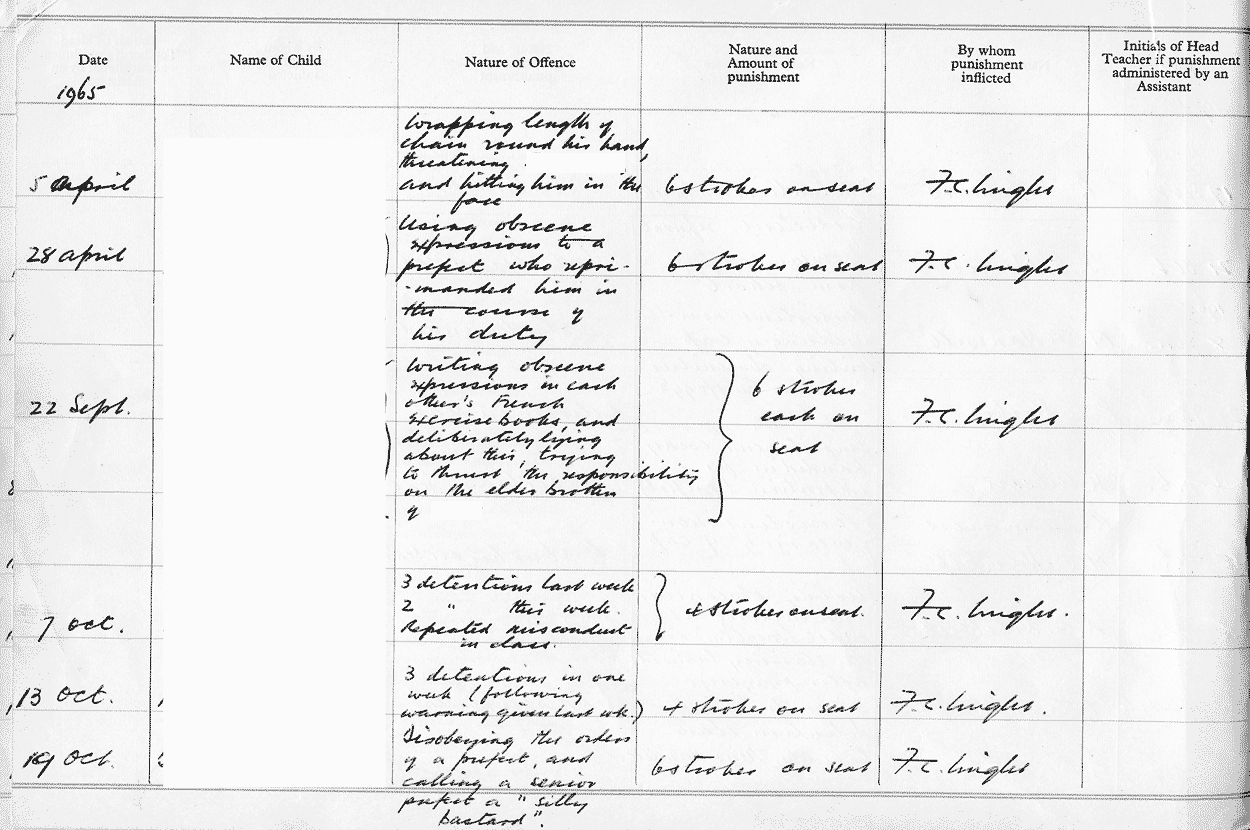 Date
Name of Child
Nature of Offence
Nature and
Amount of
punishment
By whom
punishment
inflicted
Initials of Head
Teacher if punishment
administered by an
Assistant
1965
5 April
Wrapping length of
chain round his hand,
threatening
and hitting him in the
face
6 strokes on seat
28 April
Using obscene
expressions to a
prefect who repri-
-manded him in
the course of
his duty
6 strokes on seat
22 Sept.
Writing obscene
expressions in each
other's French
exercise books, and
deliberately lying
about this, trying
to thrust the responsibility
on the elder brother
of
6 strokes
each on
seat
7 Oct.
3 detentions last week
2 " this week.
Repeated misconduct
in class.
4 strokes on seat.
13 Oct.
3 detentions in one
week (following
warning given last wk.)
4 strokes on seat
19 Oct.
Disobeying the orders
of a prefect, and
calling a senior
prefect a "silly
bastard".
6 strokes on seat